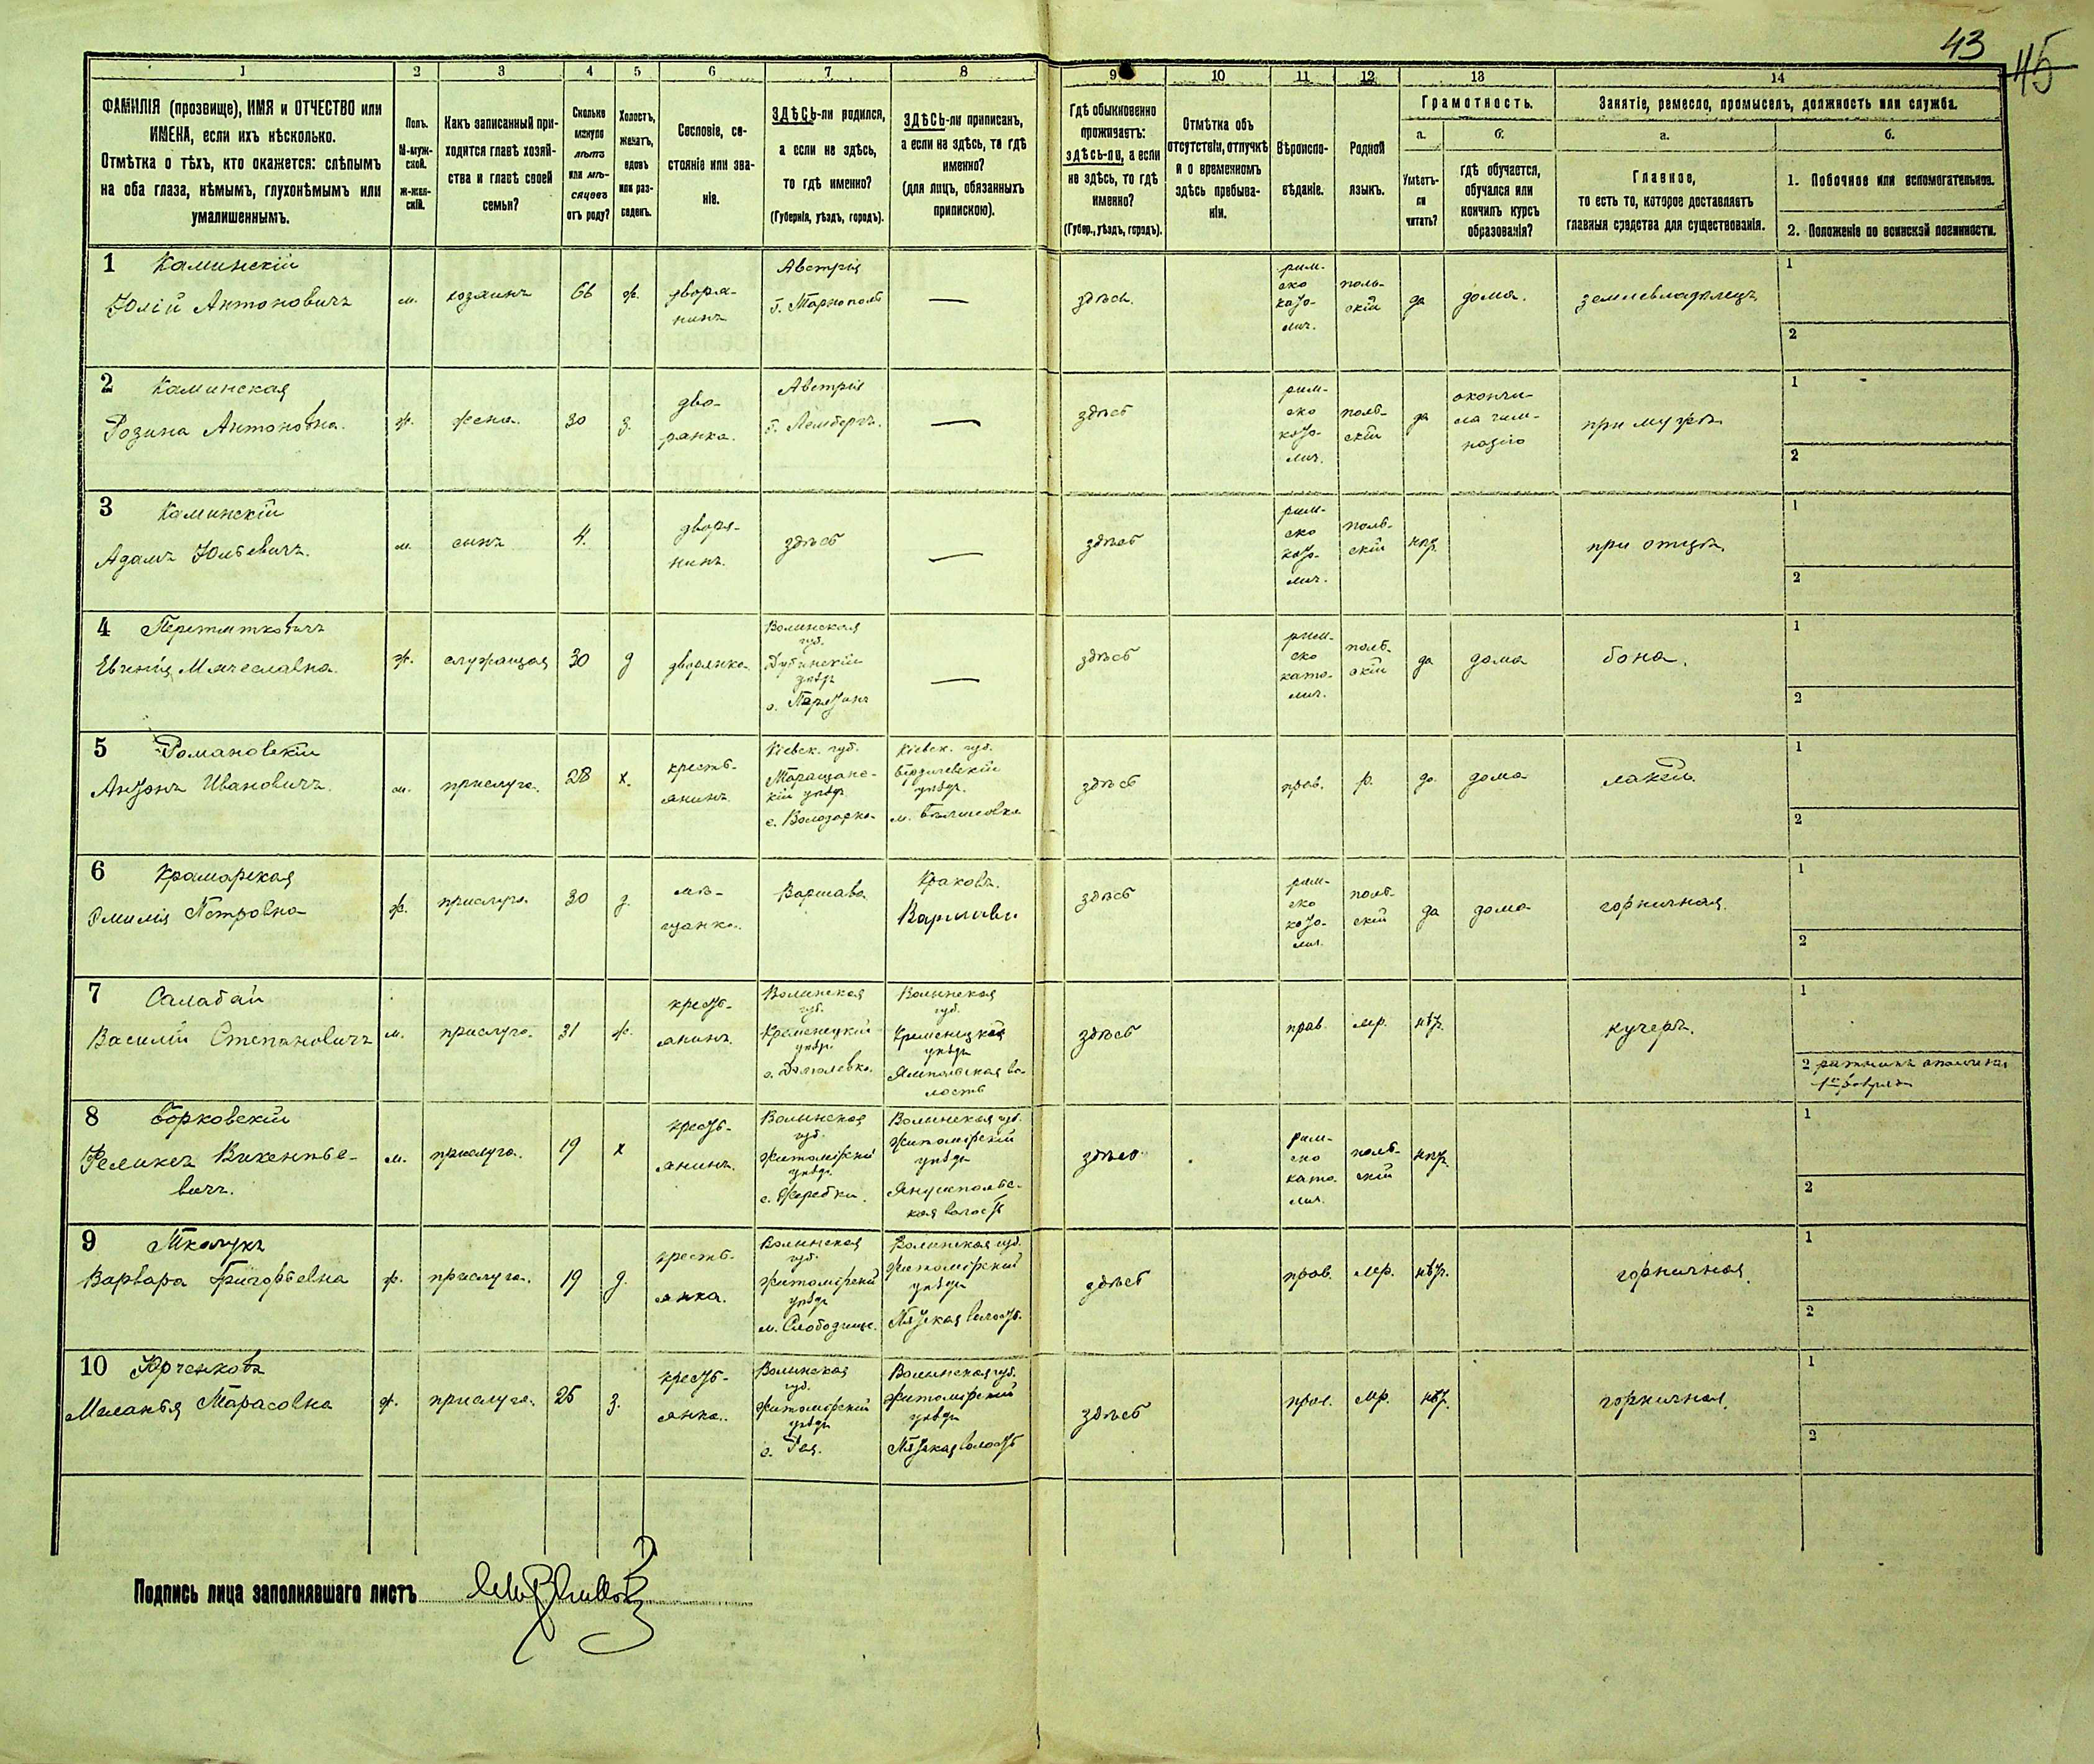 43
45
1 2 3 4 5 6 7 8 9 10 11 12 13 14
ФАМИЛІЯ (прозвище), ИМЯ и ОТЧЕСТВО или
ИМЕНА, если ихъ нѣсколько.
Отмѣтка о тѣхъ, кто окажется: слѣпымъ
на оба глаза, нѣмымъ, глухонѣмымъ или
умалишеннымъ.
Полъ.
М-муж-
ской.
Ж-жен-
скій.
Какъ записанный при-
ходится главѣ хозяй-
ства и главѣ своей
семьи?
Сколько
минуло
лѣтъ
или мѣ-
сяцевъ
отъ роду?
Холостъ,
женатъ,
вдовъ
или раз-
веденъ.
Сословіе, со-
стояніе или зва-
ніе.
ЗДѢСЬ-ли родился,
а если не здѣсь,
то гдѣ именно?
(Губернія, уѣздъ, городъ).
ЗДѢСЬ-ли приписанъ,
а если не здѣсь, то гдѣ
именно?
(для лицъ, обязанныхъ
припискою).
Гдѣ обыкновенно
проживаетъ:
здѣсь-ли, а если
не здѣсь, то гдѣ
именно?
(Губер., уѣздъ, городъ).
Отмѣтка объ
отсутствіи, отлучкѣ
и о временномъ
здѣсь пребыва-
ніи.
Вѣроиспо-
вѣданіе.
Родной
языкъ.
Грамотность.
а.
Умѣетъ-
ли
читать?
б.
гдѣ обучается,
обучался или
кончилъ курсъ
образованія?
Занятіе, ремесло, промыселъ, должность или служба.
а.
Главное,
то есть то, которое доставляетъ
главныя средства для существованія.
б.
1. Побочное или вспомогательное.
2. Положеніе по воинской повинности.
1 Каминскій
Юлій Антоновичъ
м.
хозяинъ
66
ж.
дворя-
нинъ
Австрія
г. Тарнополь
—
здѣсь.
рим-
ско
каѳо-
лич.
поль-
скій
да
дома.
землевладѣлецъ
1
2
2 Каминская
Розина Антоновна.
ж.
жена.
30
з.
дво-
рянка.
Австрія
г. Лембергъ.
—
здѣсь
рим-
ско
каѳо-
лич.
поль-
скій
да
окончи-
ла гим-
назію
при мужѣ
1
2
3 Каминскій
Адамъ Юльевичъ.
м.
сынъ
4.
дворя-
нинъ.
здѣсь
—
здѣсь
рим-
ско
каѳо-
лич.
поль-
скій
нѣт.
при отцѣ.
1
2
4
Мячеславна.
ж.
служащая
30
д
дворянка.
Волынская
губ.
Дубинскій
уѣздъ
—
здѣсь
рим-
ско
като-
лич.
поль-
скій
да
дома
бона.
1
2
5 Романовскій
Антонъ Ивановичъ.
м.
прислуга.
28
х.
кресть-
янинъ.
Кіевск. губ.
Таращанс-
кій уѣздъ
с. Володарка.
Кіевск. губ.
Бердичевскій
уѣздъ.
м. Бѣлиловка
здѣсь
прав.
р.
да
дома
лакей
1
2
6 Крамарская
Эмилія Петровна
ж.
прислуга.
30
д.
мѣ-
щанка.
Варшава
Краковъ.
Варшава
здѣсь
рим-
ско
каѳо-
лич.
поль-
скій
да
дома
горничная.
1
2
7 Салабай
Василій Степановичъ
м.
прислуга.
31
ж.
крест-
янинъ.
Волынская
губ.
Кременецкій
уѣздъ.
Волынская
губ.
Кременецкой
уѣздъ
Ямпольская во-
лость
здѣсь
прав.
мр.
нѣт.
кучеръ.
1
2 ратникъ ополченія
1го разряда
8 Борковскій
Феликсъ Викентье-
вичъ.
м.
прислуга.
19
х
крест-
янинъ.
Волынская
губ.
Житомірскій
уѣздъ.
с. Жеребки.
Волынская губ.
Житомірскій
уѣздъ
Янушпольс-
кая волость
здѣсь
рим-
ско
като.
лич.
поль-
скій
нѣт.
1
2
9 Ткачукъ
Варвара Григорьевна
ж.
прислуга.
19
д.
кресть-
янка.
Волынская
губ.
Житомірскій
уѣздъ
м. Слободище.
Волынская губ.
Житомірскій
уѣздъ
Пятская волость.
здѣсь
прав.
мр.
нѣт.
горничная.
1
2
10 Юрченковъ
Меланья Тарасовна
ж.
прислуга.
25
з.
крест-
янка.
Волынская
губ.
Житомірскій
уѣздъ
с. Рея.
Волынская губ.
Житомірскій
уѣздъ
Пятская волость
здѣсь
прав.
мр.
нѣт.
горничная.
1
2
Подпись лица заполнявшаго листъ